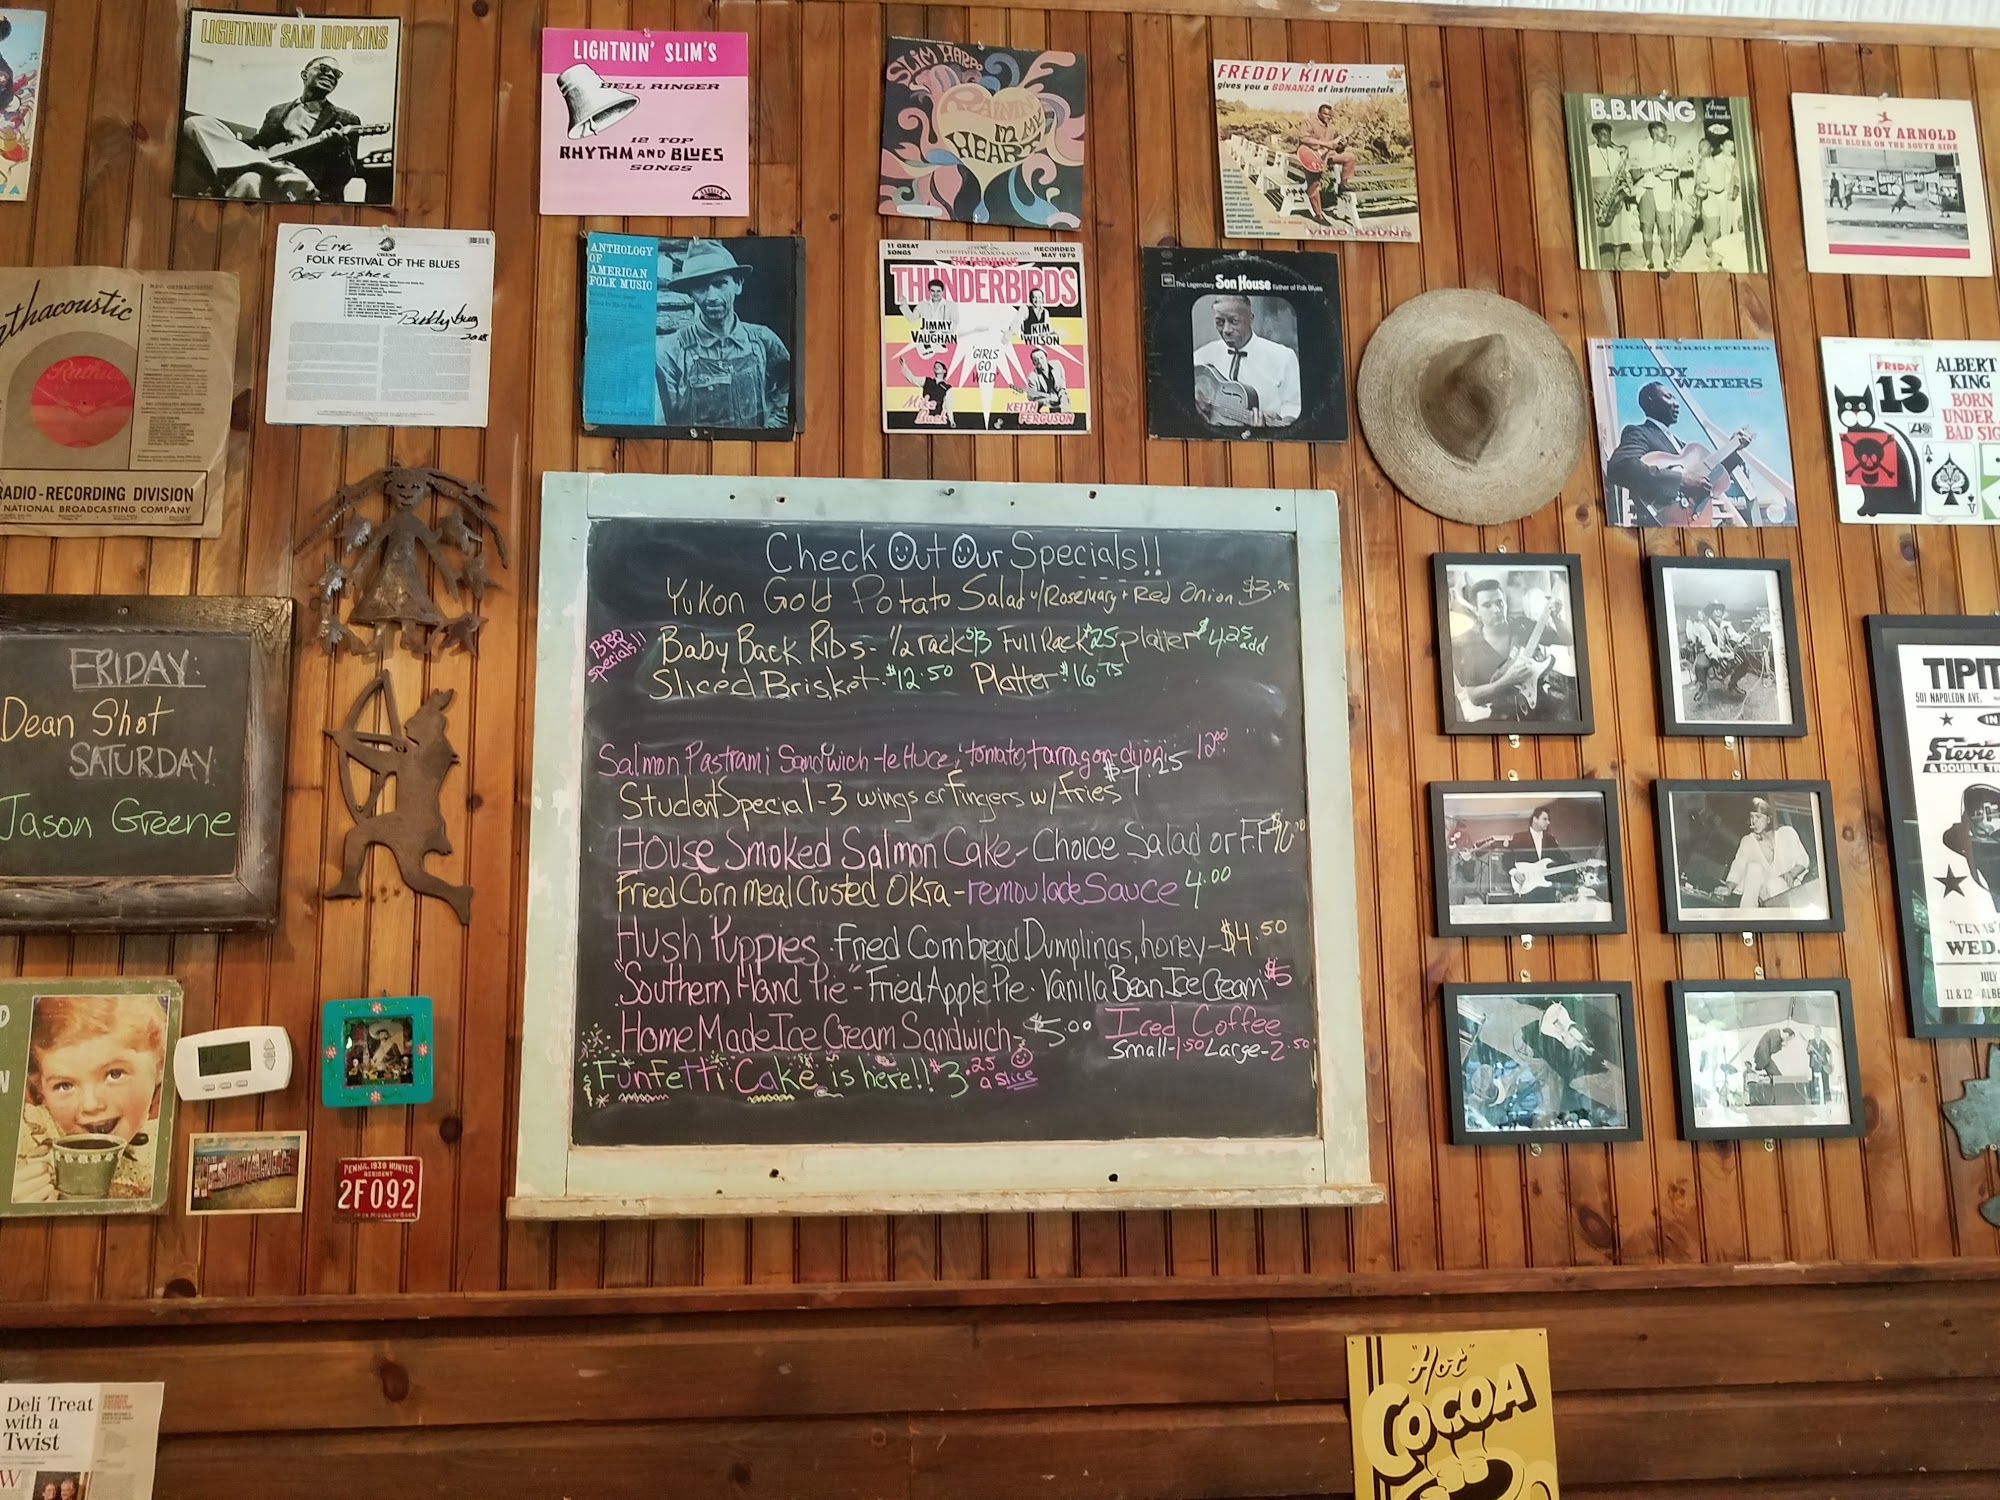 LIGHTNIN' SAM HOPKINS
LIGHTNIN' SLIM'S
BELL RINGER
12 TOP
RHYTHM AND BLUES
SONGS
SLIM HARPO
RAININ'
IN MY
HEART
FREDDY KING...
gives you a BONANZA of instrumentals
VIVID SOUND
B.B.KING
BILLY BOY ARNOLD
MORE BLUES ON THE SOUTH SIDE
To Eric
Best wishes
FOLK FESTIVAL OF THE BLUES
Buddy Guy
2018
ANTHOLOGY
OF
AMERICAN
FOLK MUSIC
11 GREAT
SONGS
RECORDED
MAY 1979
THE FABULOUS
THUNDERBIRDS
JIMMY
VAUGHAN
KIM
WILSON
GIRLS
GO
WILD
Mike
Buck
KEITH
FERGUSON
The Legendary Son House Father of Folk Blues
STEREO STEREO STEREO
MUDDY
WATERS
FRIDAY
13
ALBERT
KING
BORN
UNDER A
BAD SIG
thacoustic
Ruthie
RADIO-RECORDING DIVISION
NATIONAL BROADCASTING COMPANY
FRIDAY:
Dean Shot
SATURDAY:
Jason Greene
Check Out Our Specials!!
Yukon Gold Potato Salad w/Rosemary + Red Onion $3.
BBQ
Specials!!
Baby Back Ribs - 1/2 rack $13 Full Rack $25 platter $4.25 add
Sliced Brisket - $12.50 Platter $16.75
Salmon Pastrami Sandwich - lettuce, tomato, tarragon-dijon - 12.00
Student Special - 3 wings or Fingers w/ Fries $7.25
House Smoked Salmon Cake - Choice Salad or F.F $10
Fried Corn meal Crusted Okra - remoulade Sauce 4.00
Hush Puppies Fried Cornbread Dumplings, honey - $4.50
"Southern Hand Pie" - Fried Apple Pie - Vanilla Bean Ice Cream $5
Home Made Ice Cream Sandwich - $5.00
Iced Coffee
Small - 1.50 Large - 2.50
Funfetti Cake is here!! $3.25 a slice
TIPIT
501 NAPOLEON AVE.
IN
Stevie
A DOUBLE TR
"TEXAS
WED.
JULY
11 & 12 - ALBE
RESISTANCE
PENNA. 1939 HUNTER
RESIDENT
2F092
Deli Treat
with a
Twist
"Hot"
COCOA